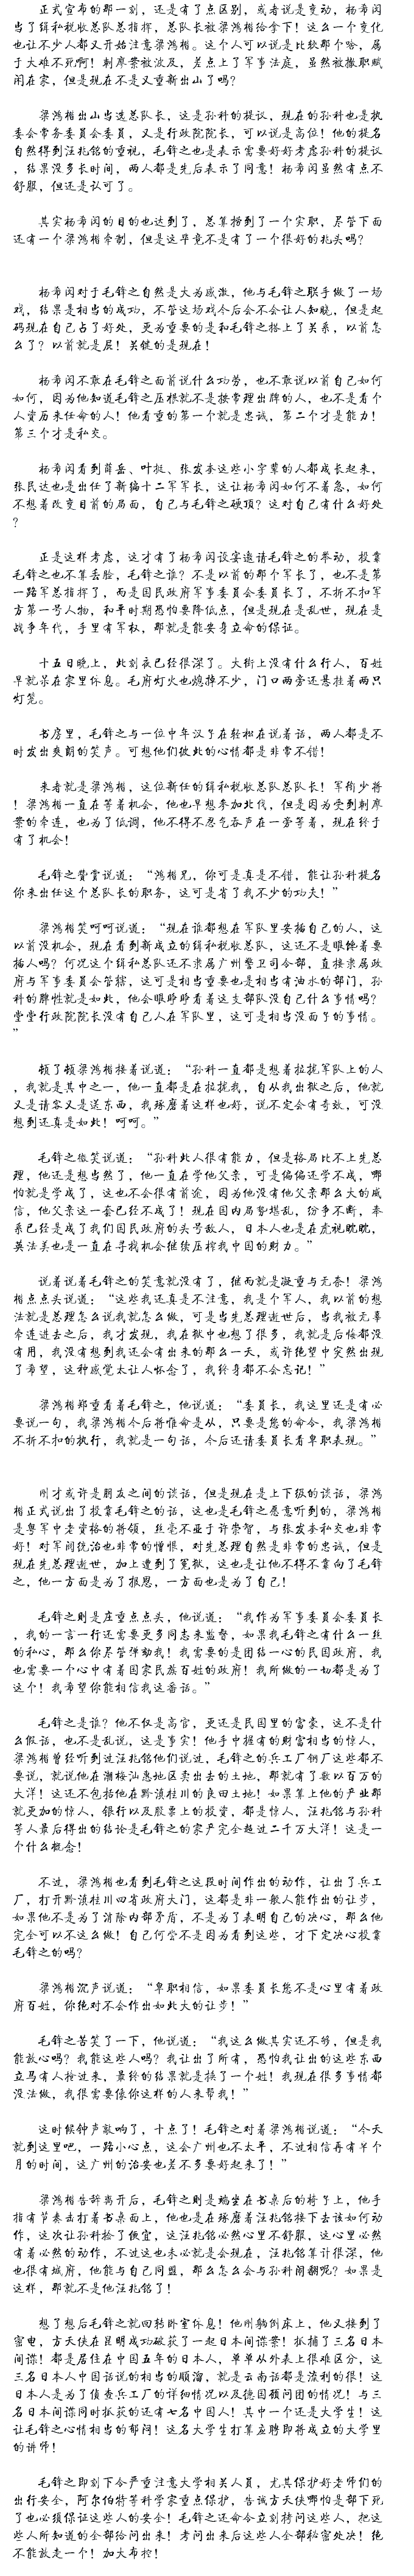 正式宣布的那一刻，还是有了点区别，或者说是变动，杨希闵
当了缉私税收总队总指挥，总队长被梁鸿楷给拿下！这么一个变化
也让不少人都又开始注意梁鸿楷。这个人可以说是比较那个啥，属
于大难不死啊！刺廖案被波及，差点上了军事法庭，虽然被撤职赋
闲在家，但是现在不是又重新出山了吗？
梁鸿楷出山当选总队长，这是孙科的提议，现在的孙科也是执
委会常务委员会委员，又是行政院院长，可以说是高位！他的提名
自然得到汪兆铭的重视，毛锋之也是表示需要好好考虑孙科的提议
，结果没多长时间，两人都是先后表示了同意！杨希闵虽然有点不
舒服，但还是认可了。
其实杨希闵的目的也达到了，总算捞到了一个实职，尽管下面
还有一个梁鸿楷牵制，但是这毕竟不是有了一个很好的兆头吗？
杨希闵对于毛锋之自然是大为感激，他与毛锋之联手做了一场
戏，结果是相当的成功，不管这场戏今后会不会让人知晓，但是起
码现在自己占了好处，更为重要的是和毛锋之搭上了关系，以前怎
么了？以前就是屁！关键的是现在！
杨希闵不敢在毛锋之面前说什么功劳，也不敢说以前自己如何
如何，因为他知道毛锋之压根就不是按常理出牌的人，也不是看个
人资历来任命的人！他看重的第一个就是忠诚，第二个才是能力！
第三个才是私交。
杨希闵看到薛岳、叶挺、张发奎这些小字辈的人都成长起来，
张民达也是出任了新编十二军军长，这让杨希闵如何不着急，如何
不想着改变目前的局面，自己与毛锋之硬顶？这对自己有什么好处
？
正是这样考虑，这才有了杨希闵设宴邀请毛锋之的举动，投靠
毛锋之也不算丢脸，毛锋之谁？不是以前的那个军长了，也不是第
一路军总指挥了，而是国民政府军事委员会委员长了，不折不扣军
方第一号人物，和平时期恐怕要降低点，但是现在是乱世，现在是
战争年代，手里有军权，那就是能安身立命的保证。
十五日晚上，此刻夜已经很深了。大街上没有什么行人，百姓
早就呆在家里休息。毛府灯火也熄掉不少，门口两旁还悬挂着两只
灯笼。
书房里，毛锋之与一位中年汉子在轻松在说着话，两人都是不
时发出爽朗的笑声。可想他们彼此的心情都是非常不错！
来者就是梁鸿楷，这位新任的缉私税收总队总队长！军衔少将
！梁鸿楷一直在等着机会，他也早想参加北伐，但是因为受到刺廖
案的牵连，也为了低调，他不得不忍气吞声在一旁等着，现在终于
有了机会！
毛锋之赞赏说道：“鸿楷兄，你可是真是不错，能让孙科提名
你来出任这个总队长的职务，这可是省了我不少的功夫！”
梁鸿楷笑呵呵说道：“现在谁都想在军队里安插自己的人，这
以前没机会，现在看到新成立的缉私税收总队，这还不是眼馋着要
插人吗？何况这个缉私总队还不隶属广州警卫司令部，直接隶属政
府与军事委员会管辖，这可是相当重要也是相当有油水的部门，孙
科的脾性就是如此，他会眼睁睁看着这支部队没自己什么事情吗？
堂堂行政院院长没有自己人在军队里，这可是相当没面子的事情。
”
顿了顿梁鸿楷接着说道：“孙科一直都是想着拉拢军队上的人
，我就是其中之一，他一直都是在拉拢我，自从我出狱之后，他就
又是请客又是送东西，我琢磨着这样也好，说不定会有奇效，可没
想到还真是如此！呵呵。”
毛锋之微笑说道：“孙科此人很有能力，但是格局比不上先总
理，他还是想当然了，他一直在学他父亲，可是偏偏还学不成，哪
怕就是学成了，这也不会很有前途，因为他没有他父亲那么大的威
信，他父亲这一套已经不成了！现在国内局势堪乱，纷争不断，奉
系已经是成了我们国民政府的头号敌人，日本人也是在虎视眈眈，
英法美也是一直在寻找机会继续压榨我中国的财力。”
说着说着毛锋之的笑意就没有了，继而就是凝重与无奈！梁鸿
楷点点头说道：“这些我还真是不注意，我是个军人，我以前的想
法就是总理怎么说我就怎么做，可是当先总理逝世后，当我被无辜
牵连进去之后，我才发现，我在狱中也想了很多，我就是后悔都没
有用，我没有想到我还会有出来的那么一天，或许绝望中突然出现
了希望，这种感觉太让人怀念了，我终身都不会忘记！”
梁鸿楷郑重看着毛锋之，他说道：“委员长，我这里还是有必
要说一句，我梁鸿楷今后将惟命是从，只要是您的命令，我梁鸿楷
不折不扣的执行，我就是一句话，今后还请委员长看卑职表现。”
刚才或许是朋友之间的谈话，但是现在是上下级的谈话，梁鸿
楷正式说出了投靠毛锋之的话，这也是毛锋之愿意听到的，梁鸿楷
是粤军中老资格的将领，丝毫不亚于许崇智，与张发奎私交也非常
好！对军阀统治也非常的憎恨，对先总理自然是非常的忠诚，但是
现在先总理逝世，加上遭到了冤狱，这也是让他不得不靠向了毛锋
之，他一方面是为了报恩，一方面也是为了自己！
毛锋之则是庄重点点头，他说道：“我作为军事委员会委员长
，我的一言一行还需要更多同志来监督，如果我毛锋之有什么一丝
的私心，那么你尽管弹劾我！我需要的是团结一心的民国政府，我
也需要一个心中有着国家民族百姓的政府！我所做的一切都是为了
这个！我希望你能相信我这番话。”
毛锋之是谁？他不仅是高官，更还是民国里的富豪，这不是什
么假话，也不是乱说，这是事实！他手中握有的财富相当的惊人，
梁鸿楷曾经听到过汪兆铭他们说过，毛锋之的兵工厂钢厂这些都不
要说，就说他在潮梅汕惠地区卖出去的土地，那就有了数以百万的
大洋！这还不包括他在黔滇桂川的良田土地！如果算上他的产业那
就更加的惊人，银行以及股票上的投资，都是惊人，汪兆铭与孙科
等人最后得出的结论是毛锋之的家产完全超过二千万大洋！这是一
个什么概念！
不过，梁鸿楷也看到毛锋之这段时间作出的动作，让出了兵工
厂，打开黔滇桂川四省政府大门，这都是非一般人能作出的让步，
如果他不是为了消除内部矛盾，不是为了表明自己的决心，那么他
完全可以不这么做！自己何尝不是因为看到这些，才下定决心投靠
毛锋之的吗？
梁鸿楷沉声说道：“卑职相信，如果委员长您不是心里有着政
府百姓，你绝对不会作出如此大的让步！”
毛锋之苦笑了一下，他说道：“我这么做其实还不够，但是我
能放心吗？我能这些人吗？我让出了所有，恐怕我让出的这些东西
立马有人抢过来，最终的结果就是换了一个姓！我现在很多事情都
没法做，我很需要像你这样的人来帮我！”
这时候钟声敲响了，十点了！毛锋之对着梁鸿楷说道：“今天
就到这里吧，一路小心点，这会广州也不太平，不过相信再有半个
月的时间，这广州的治安也差不多要好起来了！”
梁鸿楷告辞离开后，毛锋之则是端坐在书桌后的椅子上，他手
指有节奏击打着书桌面上，他也是在琢磨着汪兆铭接下去该如何动
作，这次让孙科捡了便宜，这汪兆铭必然心里不舒服，这心里必然
有着必然的动作，不过这也未必就是会现在，汪兆铭算计很深，他
也很有城府，他能与自己同盟，那么怎么会与孙科闹翻呢？如果是
这样，那就不是他汪兆铭了！
想了想后毛锋之就回转卧室休息！他刚躺倒床上，他又接到了
密电，方天侠在昆明成功破获了一起日本间谍案！抓捕了三名日本
间谍！都是居住在中国五年的日本人，单单从外表上很难区分，这
三名日本人中国话说的相当的顺溜，就是云南话都是流利的很！这
日本人是为了侦查兵工厂的详细情况以及德国顾问团的情况！与三
名日本间谍同时抓获的还有七名中国人！其中一个还是大学生！这
让毛锋之心情相当的郁闷！这名大学生打算应聘即将成立的大学里
的讲师！
毛锋之即刻下令严重注意大学相关人员，尤其保护好老师们的
出行安全，阿尔伯特等科学家重点保护，告诫方天侠哪怕是部下死
了也必须保证这些人的安全！毛锋之还命令立刻拷问这些人，把这
些人所知道的全部给问出来！考问出来后这些人全部秘密处决！绝
不能放走一个！加大布控！